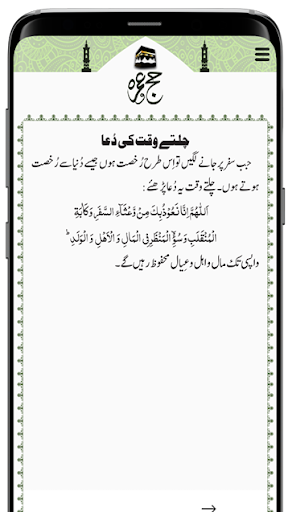 حج و عمرہ
چلتے وقت کی دُعا
جب سفر پر جانے لگیں تو اِس طرح رُخصت ہوں جیسے دُنیا سے رُخصت
ہوتے ہوں۔ چلتے وقت یہ دُعا پڑھئے:
اَللّٰهُمَّ اِنَّا نَعُوْذُ بِكَ مِنْ وَّعْثَآءِ السَّفَرِ وَكَاٰبَةِ
الْمُنْقَلَبِ وَسُوْٓءِ الْمَنْظَرِ فِی الْمَالِ وَ الْاَهْلِ وَ الْوَلَدِ ؕ
واپسی تک مال و اہل و عیال محفوظ رہیں گے۔